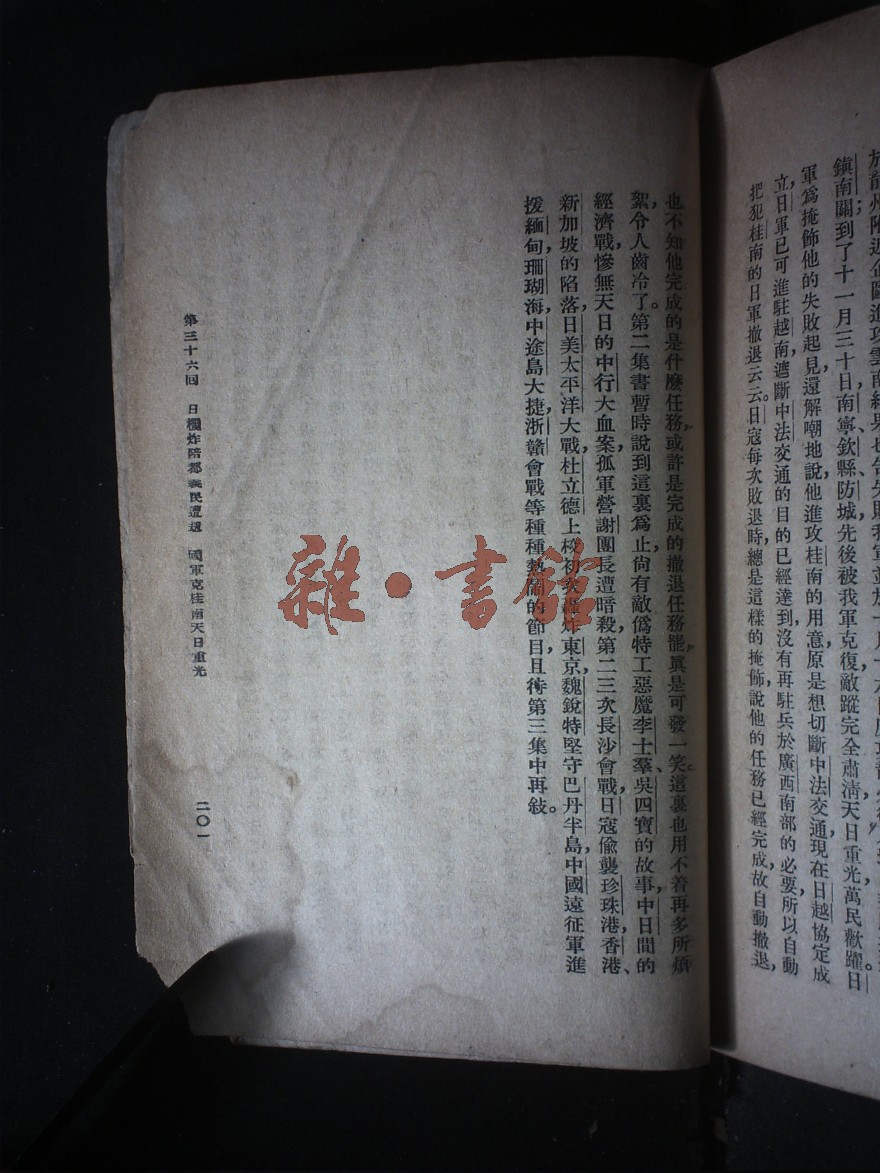 鎮南關；到了十一月三十日，南寧、欽縣、防城先後被我軍克復，敵蹤完全肅清，天日重光，萬民歡躍。日
軍爲掩飾他的失敗起見，還解嘲地說，他進攻桂南的用意，原是想切斷中法交通，現在日越協定成
立，日軍已可進駐越南，遮斷中法交通的目的，已經達到，沒有再駐兵於廣西南部的必要，所以自動
把犯桂南的日軍撤退云云。日寇每次敗退時，總是這樣的掩飾，說他的任務已經完成，故自動撤退，
也不知他完成的是什麼任務，或許是完成的撤退任務罷，眞是可發一笑。這裏也用不着再多所煩
絮，令人齒冷了。第二集書暫時說到這裏爲止，尙有敵僞特工惡魔李士羣、吳四寶的故事，中日間的
經濟戰，慘無天日的中行大血案，孤軍營謝團長遭暗殺，第二三次長沙會戰，日寇偷襲珍珠港，香港、
新加坡的陷落，日美太平洋大戰，杜立德上校初次轟炸東京，魏銳特堅守巴丹半島，中國遠征軍進
援緬甸，珊瑚海中途島大捷，浙贛會戰等種種熱鬧的節目，且待第三集中再敍。
第三十六回　日機炸陪都義民遭殃　國軍克桂南天日重光
二〇一
雜·書館